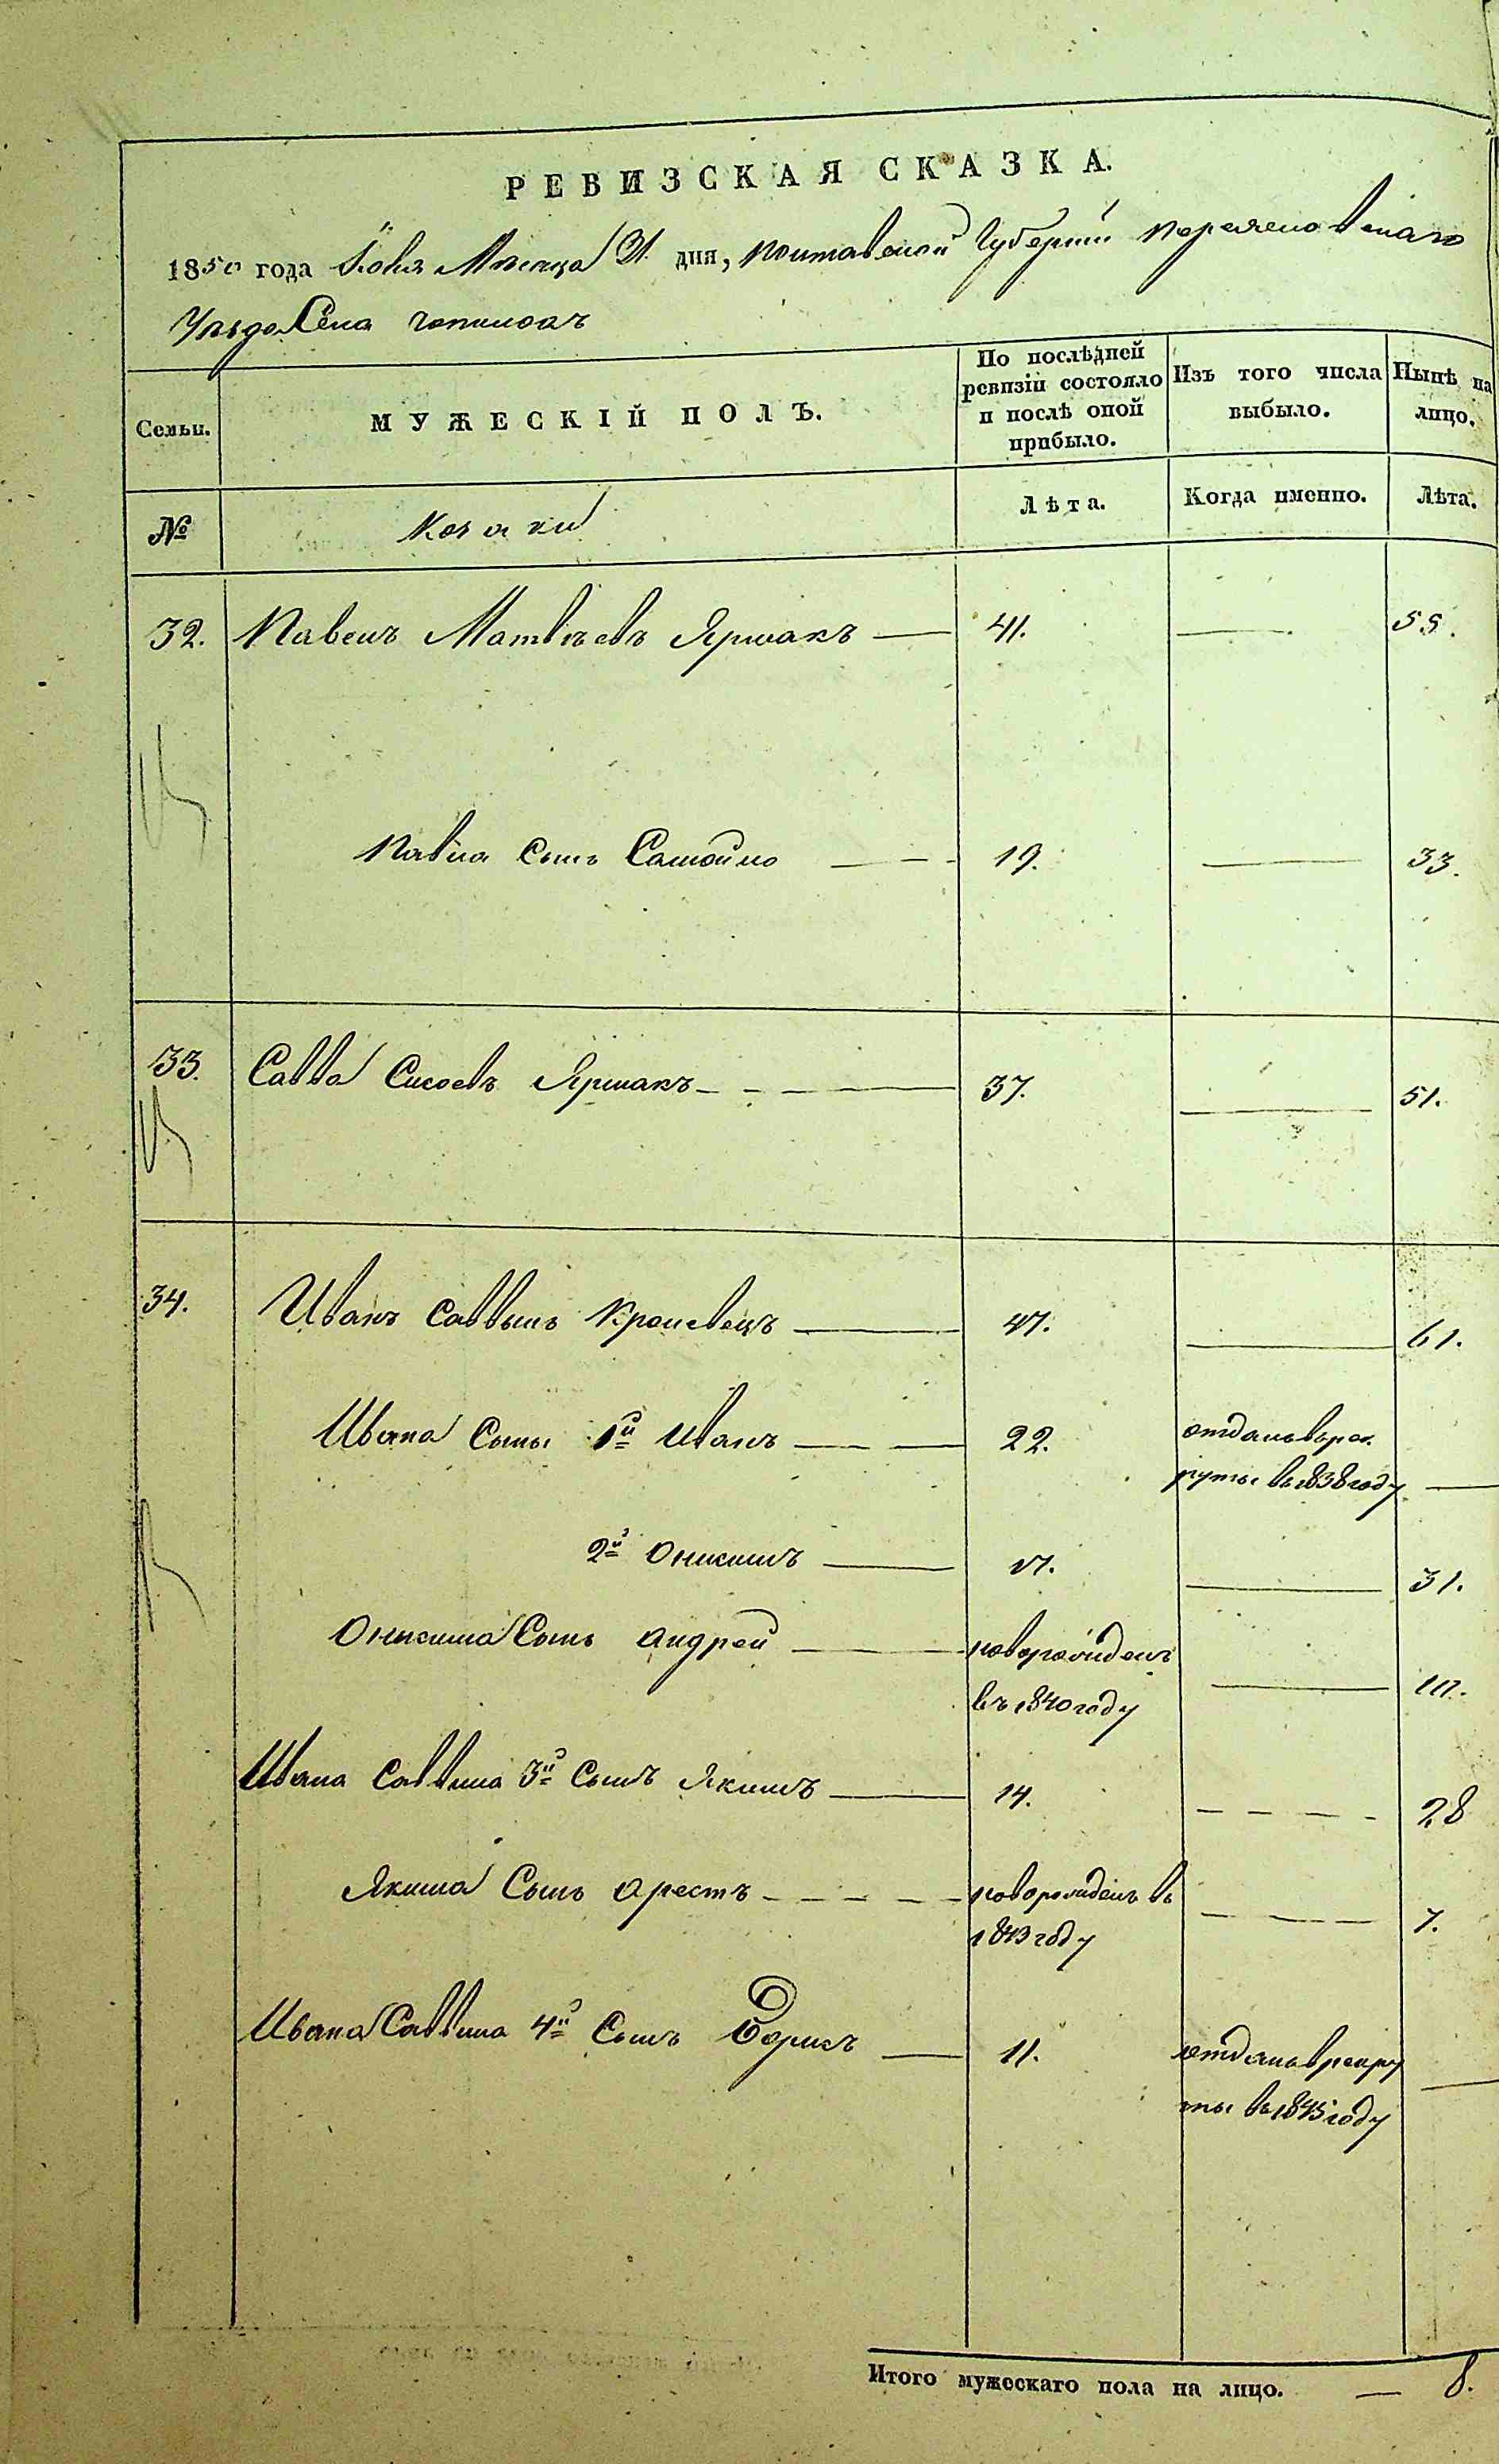 РЕВИЗСКАЯ СКАЗКА.
1850 года Іюня Месяца 21. дня, Полтавской Губерніи Переяславскаго
Уезда Села
Семьи.
МУЖЕСКІЙ ПОЛЪ.
По послѣдней ревизіи состояло и послѣ оной прибыло.
Изъ того числа выбыло.
Нынѣ на лицо.
№
Козаки
Лѣта.
Когда именно.
Лѣта.
32. Павелъ Матвѣевъ Ярмакъ — 41. — 55.
Павла Сынъ Самойло — 19. — 33.
33. Савва Сисоевъ Ярмакъ — 37. — 51.
34. Иванъ Саввинъ Кропевецъ — 47. — 61.
Ивана Сыны 1й Иванъ — 22. отданъ в рек
руты в 1838 году —
2й Онисимъ — 17. — 31.
Онисима Сынъ Андрей — новорожденъ
въ 1840 году — 10.
Ивана Саввина 3й Сынъ Якимъ — 14. — 28
Якима Сынъ Орестъ — новорожденъ въ
1843 году — 7.
Ивана Саввина 4й Сынъ Борисъ — 11. отданъ в рекру
ты в 1845 году —
Итого мужескаго пола на лицо. — 8.